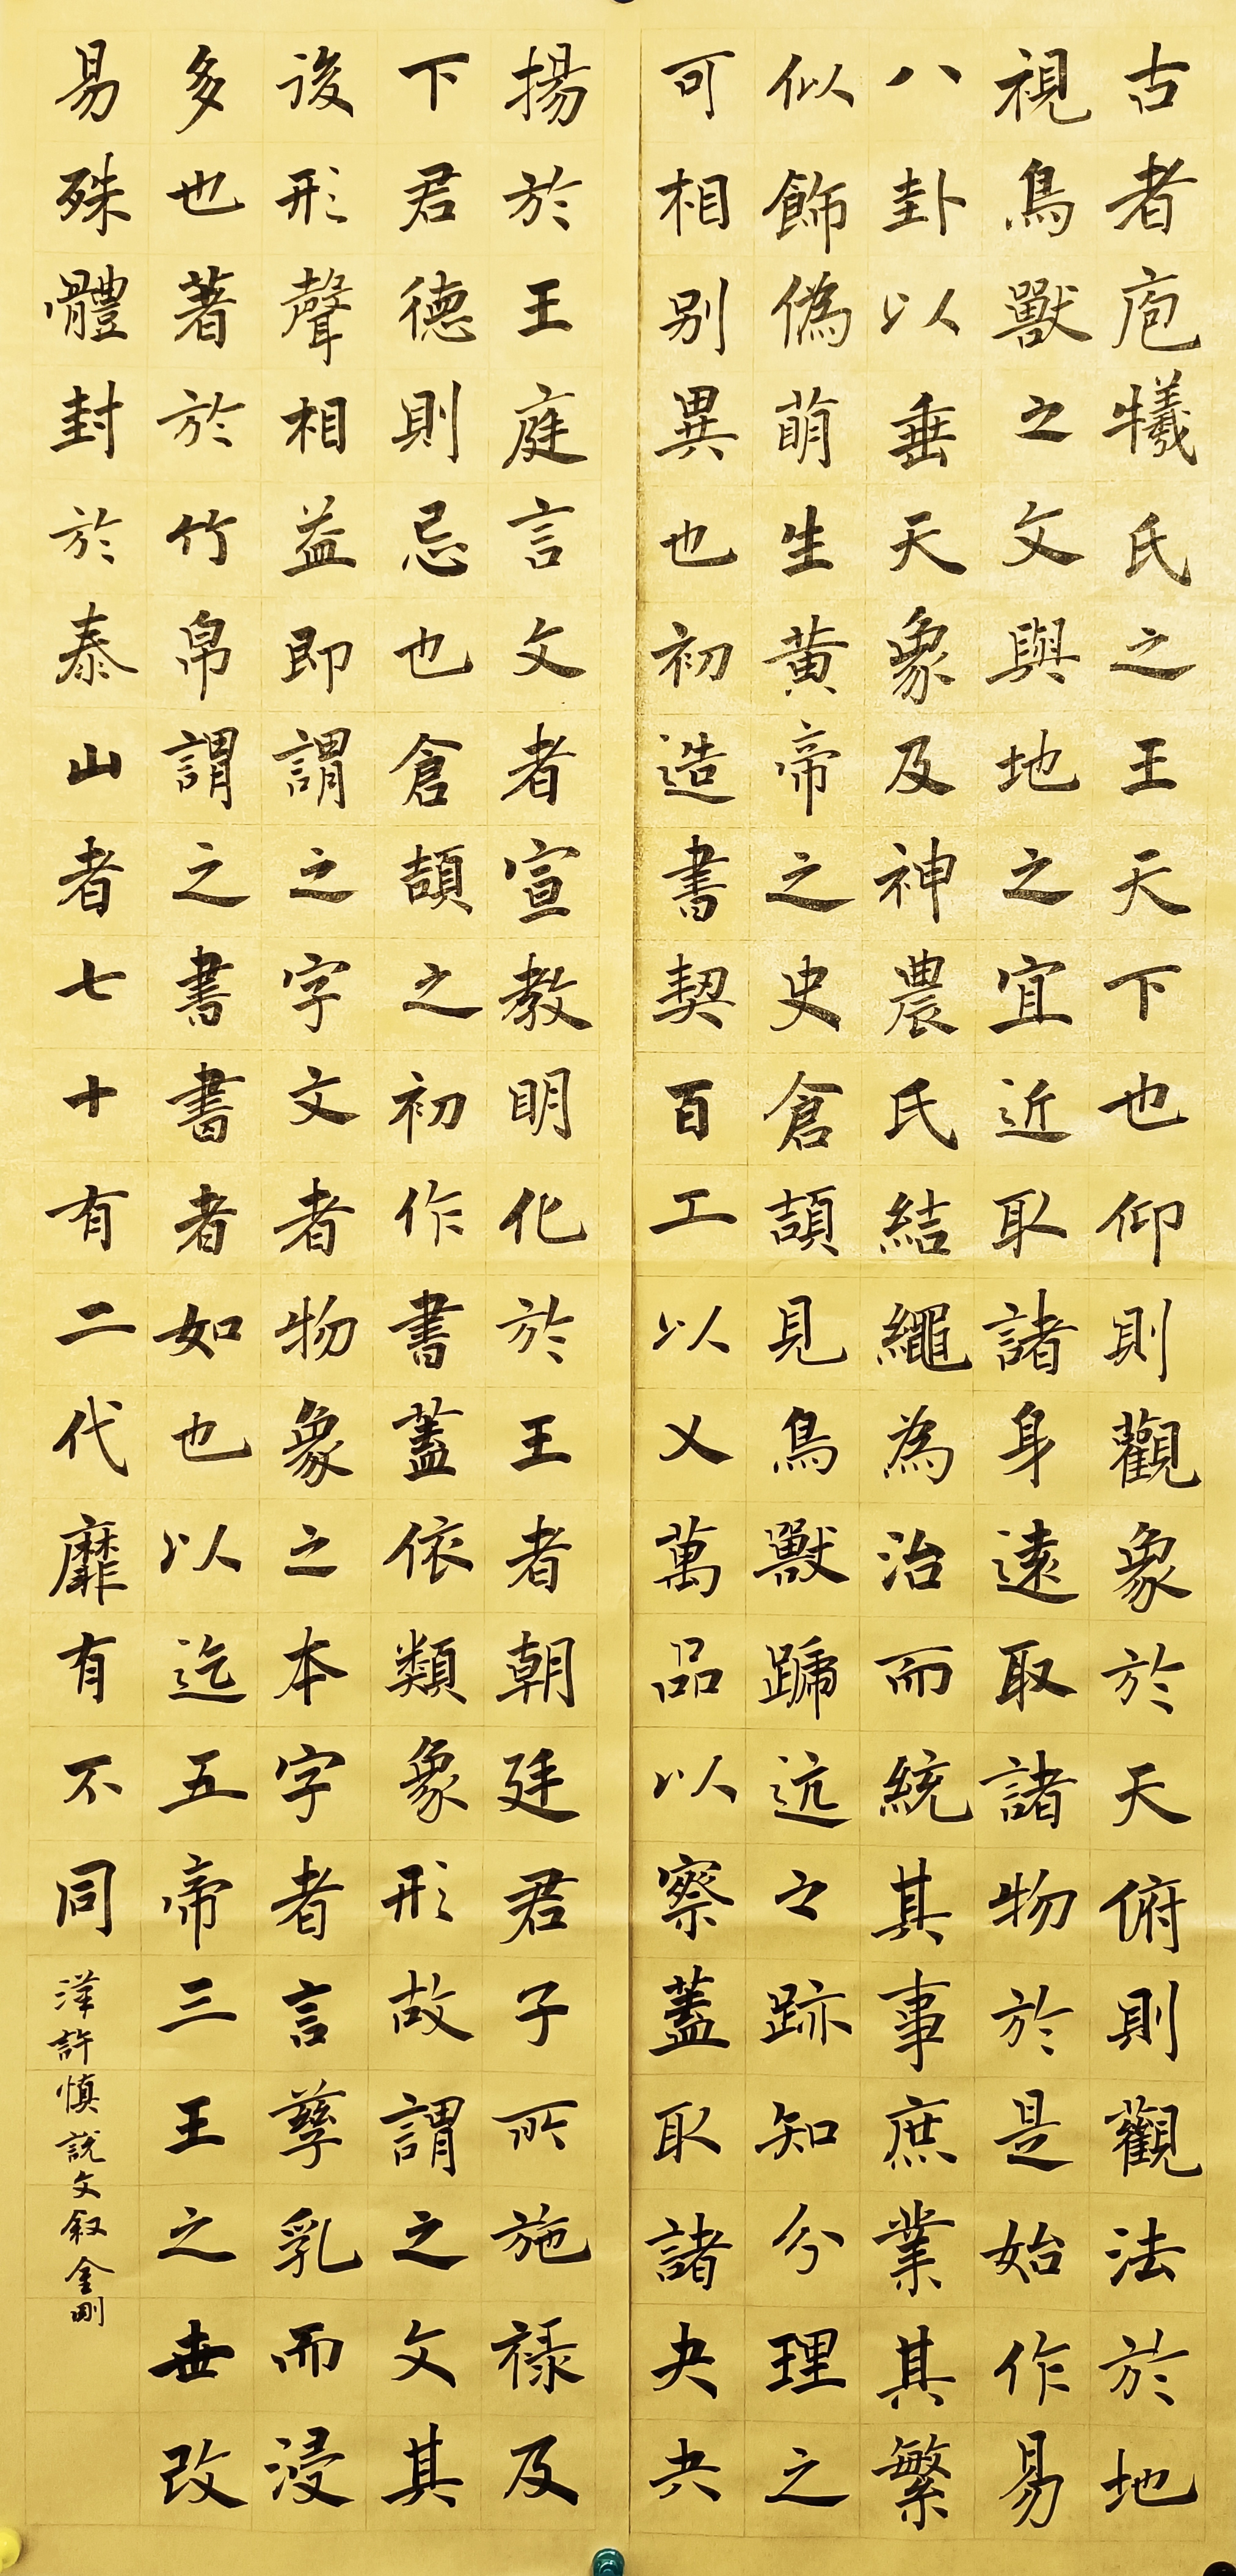 古者庖犧氏之王天下也仰則觀象於天俯則觀法於地
視鳥獸之文與地之宜近取諸身遠取諸物於是始作易
八卦以垂天象及神農氏結繩為治而統其事庶業其繁
似飾偽萌生黃帝之史倉頡見鳥獸蹏迒之跡知分理之
可相別異也初造書契百工以乂萬品以察蓋取諸夬夬
揚於王庭言文者宣教明化於王者朝廷君子所施祿及
下君德則忌也倉頡之初作書蓋依類象形故謂之文其
後形聲相益即謂之字文者物象之本字者言孳乳而浸
多也著於竹帛謂之書書者如也以迄五帝三王之世改
易殊體封於泰山者七十有二代靡有不同
漢許慎說文叙金剛